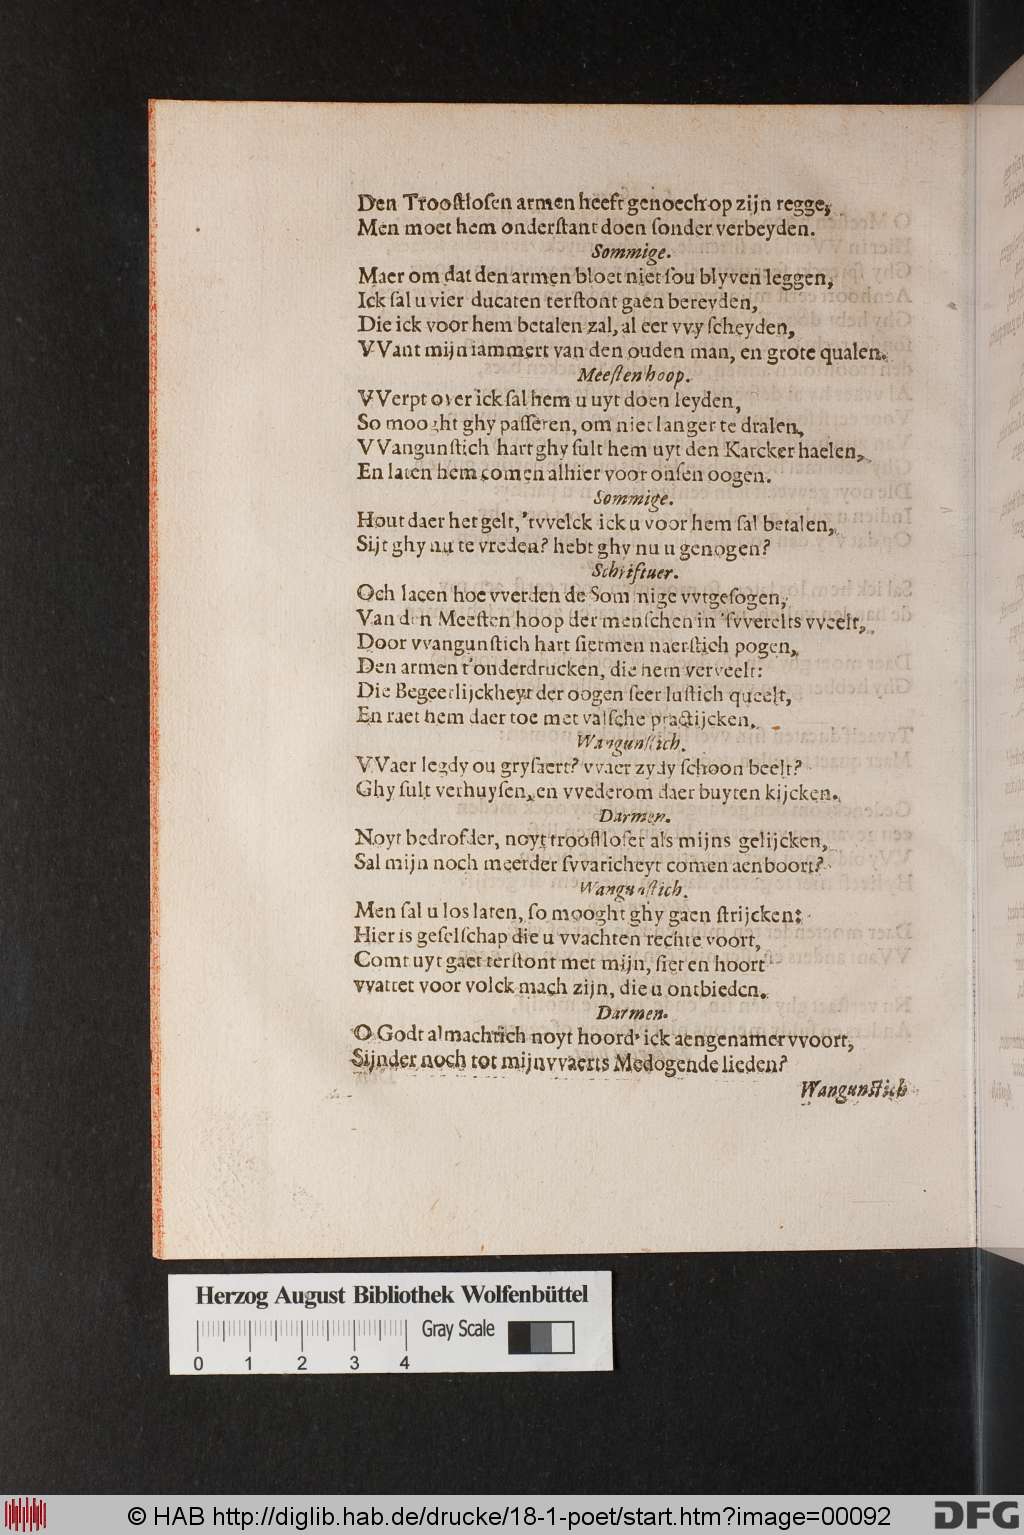 Den Troostlosen armen heeft genoech op zijn regge,
Men moet hem onderstant doen sonder verbeyden.
Sommige.
Maer om dat den armen bloet niet sou blyven leggen,
Ick sal u vier ducaten terstont gaen bereyden,
Die ick voor hem betalen zal, al eer vvy scheyden,
VVant mijn iammert van den ouden man, en grote qualen.
Meesten hoop.
VVerpt over ick sal hem u uyt doen leyden,
So mooght ghy passeren, om niet langer te dralen,
VVangunstich hart ghy sult hem uyt den Karcker haelen,
En laten hem comen alhier voor onsen oogen.
Sommige.
Hout daer het gelt, 'tvvelck ick u voor hem sal betalen,
Sijt ghy nu te vreden? hebt ghy nu u genogen?
Schriftuer.
Och lacen hoe vverden de Sommige vvtgesogen,
Van den Meesten hoop der menschen in 'svverelts vveelt,
Door vvangunstich hart siermen naerstich pogen,
Den armen t'onderdrucken, die hem verveelt:
Die Begeerlijckheyt der oogen seer lustich queelt,
En raet hem daer toe met valsche practijcken.
Wangunstich.
VVaer legdy ou grysaert? vvaer zydy schoon beelt?
Ghy sult verhuysen, en vvederom daer buyten kijcken.
Darmen.
Noyt bedrofder, noyt troostloser als mijns gelijcken,
Sal mijn noch meerder svvaricheyt comen aenboort?
Wangunstich.
Men sal u los laten, so mooght ghy gaen strijcken:
Hier is geselschap die u vvachten rechte voort,
Comt uyt gaet terstont met mijn, siet en hoort
vvattet voor volck mach zijn, die u ontbieden.
Darmen.
O Godt almachtich noyt hoord' ick aengenamer vvoort,
Sijnder noch tot mijnvvaerts Medogende lieden?
Wangunstich
Herzog August Bibliothek Wolfenbüttel
Gray Scale
0 1 2 3 4
© HAB http://diglib.hab.de/drucke/18-1-poet/start.htm?image=00092
DFG